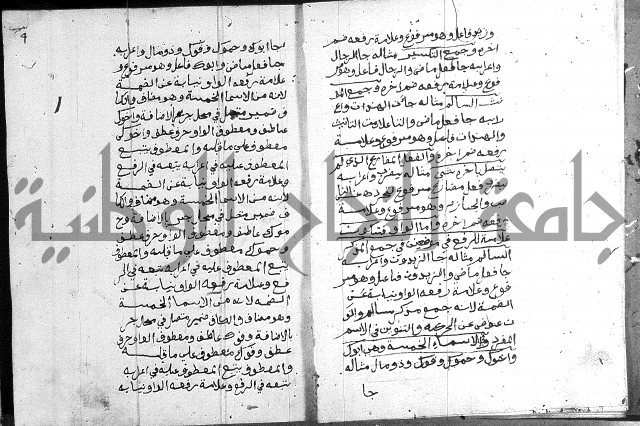 وزيد فاعل وهو مرفوع وعلامة رفعه ضم
اخره وجمع التكسير مثاله جا الرجال
واعرابه جا فعل ماضي والرجال فاعل وهو مر
فوع وعلامة رفعه ضم اخره وجمع المو
نث السالم مثاله جائت الهندات واع
رابه جا فعل ماضي والتا علامت التانيث
والهندات فاعل وهو مرفوع وعلامة
رفعه ضم اخره والفعل المضارع الذي لم
يتصل باخره شي مثاله يضرب واعرابه
يضرب فعل مضارع مرفوع
والجازم وهو مرفوع وعلامة
رفعه ضم اخره واما الواو فتكون
علامة للرفع في موضعين في جمع المذكر
السالم مثاله جا الزيدون واعرابه
جا فعل ماضي والزيدون فاعل وهو مر
فوع وعلامة رفعه الواو نيابة عن
الضمة لانه جمع مذكر سالم والنو
ن عوض عن الحركة والتنوين في الاسم
المفرد والاسماء الخمسة وهي ابوك
واخوك وحموك وفوك وذو مال مثاله
جا
جا ابوك وحموك وفوك وذو مال واعرابه
جا فعل ماضي وابوك فاعل وهو مرفوع و
علامة رفعه الواو نيابة عن الضمة
لانه من الاسما الخمسة وهو مضاف والكا
ف ضمير متصل في محل جر بالاضافة واخوك
عاطف ومعطوف الواو حرف عطف واخوك
معطوف على ما قبله والمعطوف يتبع
المعطوف عليه في اعرابه يتبعه في الرفع
وعلامة رفعه الواو نيابة عن الضمة
لانه من الاسما الخمسة وهو مضاف والكا
ف ضمير متصل في محل جر بالاضافة وح
موك عاطف ومعطوف الواو حرف عطف
وحموك معطوف على ما قبله والمعطوف
يتبع المعطوف عليه في اعرابه يتبعه في الر
فع وعلامة رفعه الواو نيابة عن
الضمه لانه من الاسما الخمسة
وهو مضاف والكاف ضمير متصل في محل جر
بالاضافة وفوك عاطف ومعطوف الواو حرف
عطف وفوك معطوف على ما قبله
والمعطوف يتبع المعطوف عليه في اعرابه
يتبعه في الرفع وعلامة رفعه الواو نيابه
جامعة النجاح الوطنية